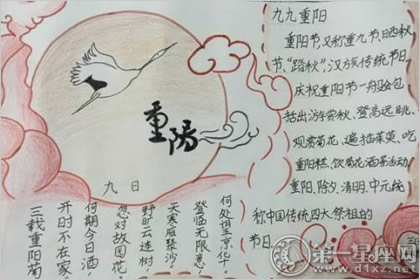 重陽
九日
三载重阳菊
开时不在家
何期今日酒
忽对故园花
野旷云连树
天寒雁聚沙
登临无限意
何处望京华
九九重阳
重阳节,又称重九节、晒秋
节、“踏秋”,汉族传统节日
庆祝重阳节一般会包
括出游赏秋、登高远眺、
观赏菊花、遍插茱萸、吃
重阳糕、饮菊花酒等活动
重阳、除夕、清明、中元统
称中国传统四大祭祖的
节日。
第一星座网
www.d1xz.net